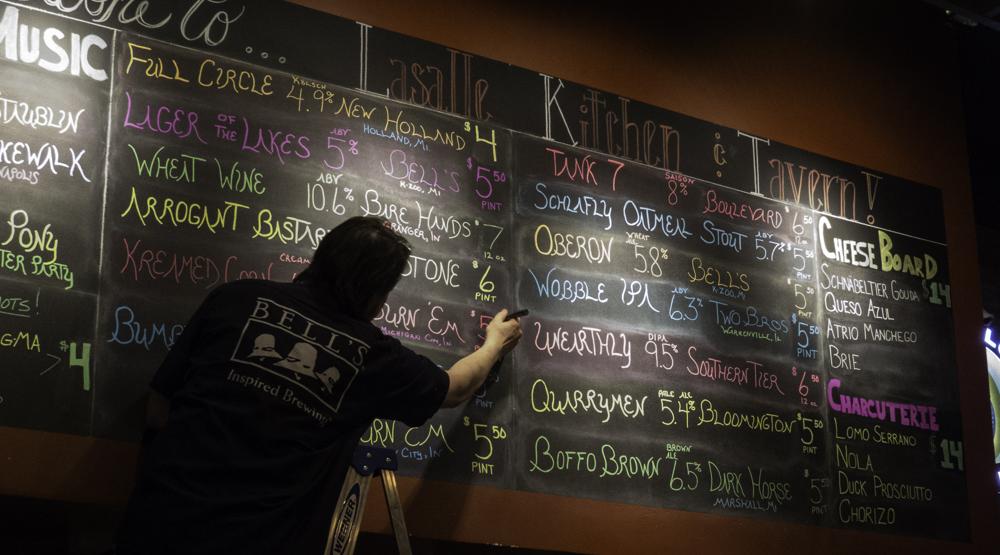 To.... Lasalle Kitchen & Tavern!
MUSIC
PONY
TER PARTY
OTS!
GMA
$4
FULL CIRCLE KÖLSCH 4.9% NEW HOLLAND HOLLAND, MI. $4
LAGER OF THE LAKES ABV 5% BELL'S K-ZOO, MI $5.50 PINT
WHEAT WINE 10.6% ABV BARE HANDS GRANGER, IN $7 12 OZ
ARROGANT BASTAR STONE $6 PINT
KREAMED CORN CREAM BURN 'EM MICHIGAN CITY, IN. $5
BUMP
BURN 'EM CITY, IN $5.50 PINT
TANK 7 SAISON 8% BOULEVARD $6.50 12 OZ
SCHLAFLY OATMEAL STOUT 5.7% $5.50 PINT
OBERON WHEAT ALE 5.8% BELL'S K-ZOO, MI $5.50 PINT
WOBBLE IPA 6.3% TWO BROS WARRENVILLE, IL $5.50 PINT
UNEARTHLY DIPA 9.5% SOUTHERN TIER $6.50 12 OZ
QUARRYMEN PALE ALE 5.4% BLOOMINGTON $5.50 PINT
BOFFO BROWN BROWN ALE 6.5% DARK HORSE MARSHALL, MI $5.50 PINT
CHEESE BOARD
SCHNÄBELTIER GOUDA $14
QUESO AZUL
ATRIO MANCHEGO
BRIE
CHARCUTERIE
LOMO SERRANO $14
NOLA
DUCK PROSCIUTTO
CHORIZO
BELL'S
Inspired Brewing
WERNER